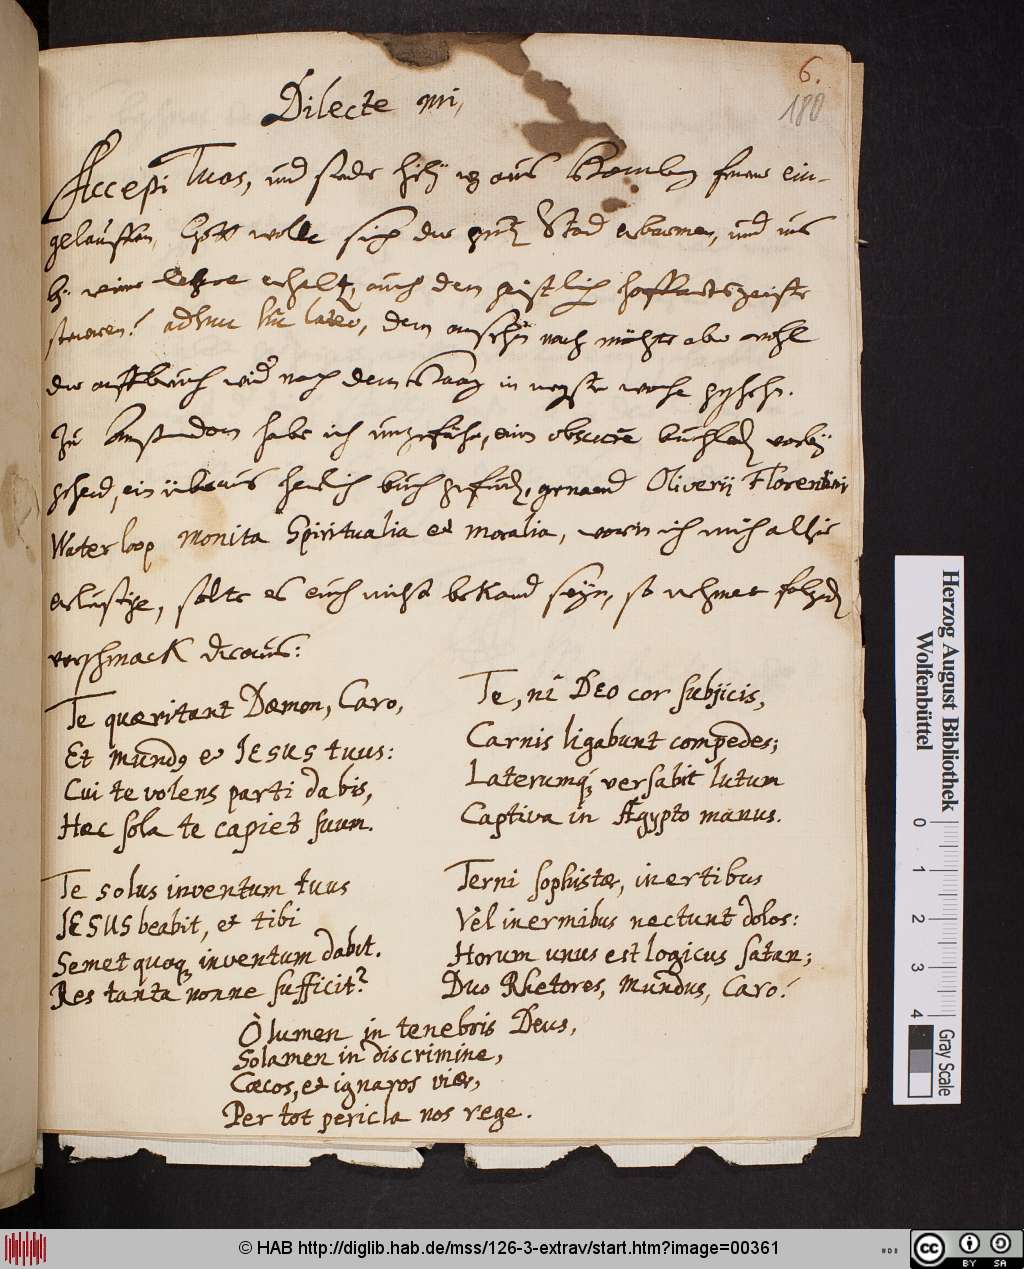 6.
180
Dilecte mi,
Accepi Tuas, und sende hiebey aus ein-
gelauffen, Gott wolle sich der Stad erbarmen, und uns
b. reiner Lehre erhalten, auch dem geistlichen hoffartsgeiste
steuren! adhuc hic lateo, dem ansehen nach möchte aber wohl
der auffbruch wider nach dem Haag in wochen geschehen.
Zu Amsterdam habe ich ungefähr, ein obscure buchladen vorbey
gehend, ein überaus herrlich buch gefunden, genaend Oliverij Florentini
Waterloop monita Spiritualia et moralia, worin ich mich allhie
erlustige, solte es euch nicht bekand seyn, so nehmet folgenden
vorschmack daraus:
Te quæritant Dæmon, Caro,
Et mundus et IESUS tuus:
Cui te volens parti dabis,
Hæc sola te capiet suum.
Te, ni DEO cor subjicis,
Carnis ligabunt compedes;
Laterumq; versabit lutum
Captiva in Ægypto manus.
Te solus inventum tuus
IESUS beabit, et tibi
Semet quoq; inventum dabit.
Res tanta nonne sufficit?
Terni sophistæ, inertibus
Vel inermibus nectunt dolos:
Horum unus est logicus satan;
Duo Rhetores, mundus, Caro!
Ò lumen in tenebris Deus,
Solamen in discrimine,
Cæcos, et ignaros viæ,
Per tot pericla nos rege.
Herzog August Bibliothek
Wolfenbüttel
0 1 2 3 4
Gray Scale
© HAB http://diglib.hab.de/mss/126-3-extrav/start.htm?image=00361
cc BY SA